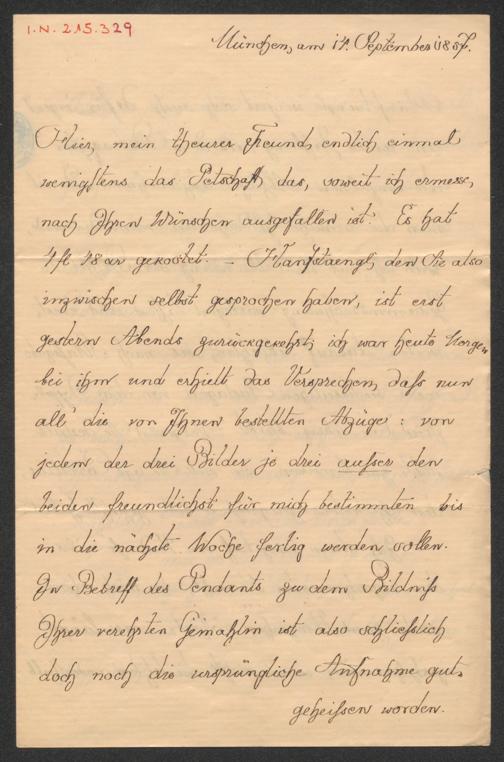 I.N. 215.329
München, am 14. September 1887.
Hier, mein theurer Freund, endlich einmal
wenigstens das Petschaft das, soweit ich ermesse,
nach Ihren Wünschen ausgefallen ist. Es hat
4 fl 48 gekostet. – Hanfstaengl, den Sie also
inzwischen selbst gesprochen haben, ist erst
gestern Abends zurückgekehrt; ich war heute Morgen
bei ihm und erhielt das Versprechen, dass nun
all' die von Ihnen bestellten Abzüge: von
jedem der drei Bilder je drei ausser den
beiden freundlichst für mich bestimmten bis
in die nächste Woche fertig werden sollen.
In Betreff des Pendants zu dem Bildniss
Ihrer verehrten Gemahlin ist also schliesslich
doch noch die ursprüngliche Aufnahme gut-
geheissen worden.